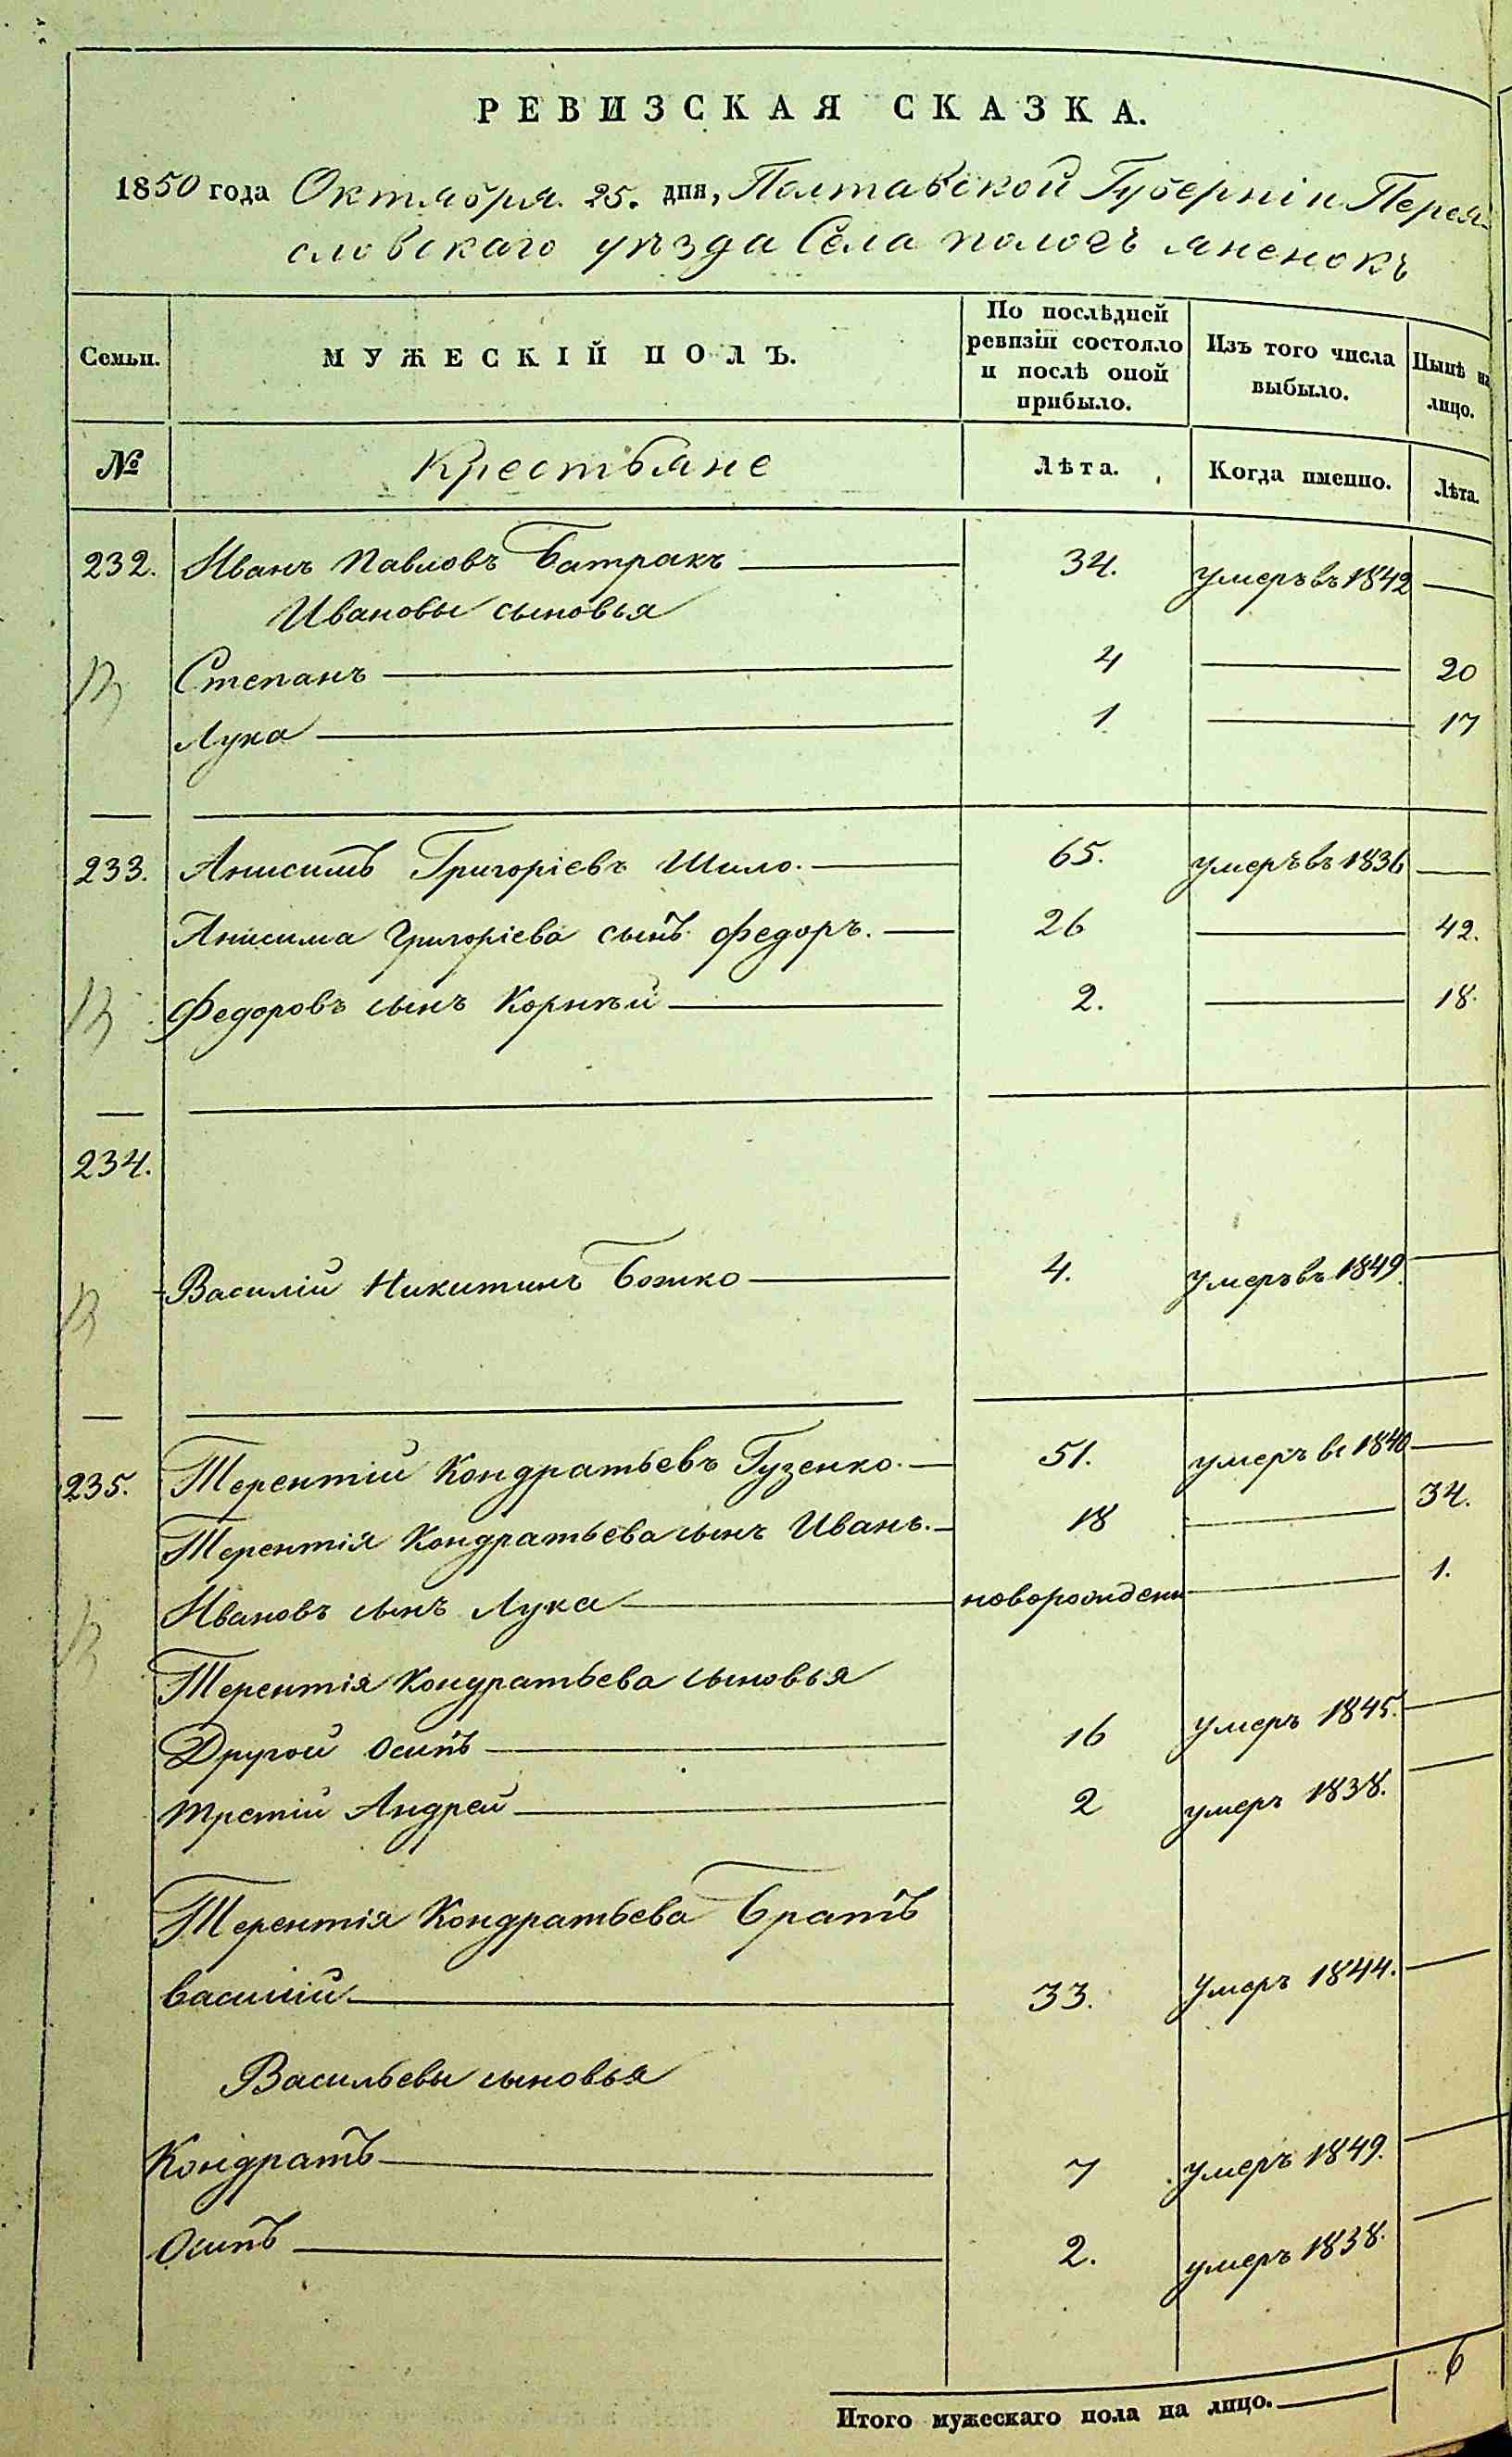 РЕВИЗСКАЯ СКАЗКА.
1850 года Октября 25. дня, Полтавской Губерніи Перея-
словскаго уѣзда Села пологъ яненокъ
Семьи.
МУЖЕСКІЙ ПОЛЪ.
По послѣдней ревизіи состояло и послѣ оной прибыло.
Изъ того числа выбыло.
Нынѣ на лицо.
№ Крестьяне Лѣта. Когда именно. Лѣта.
232. Иванъ Павловъ Батракъ 34. умеръ въ 1842
Ивановы сыновья
Степанъ 4 20
Лука 1 17
233. Анисимъ Григоріевъ Шило. 65. умеръ въ 1836
Анисима Григоріева сынъ Федоръ. 26 42.
Федоровъ сынъ Корнѣй 2. 18.
234.
Василій Никитинъ Божко 4. умеръ въ 1849.
235. Терентій Кондратьевъ Гузенко. 51. умеръ въ 1840
Терентія Кондратьева сынъ Иванъ. 18 34.
Ивановъ сынъ Лука новорожденъ 1.
Терентія Кондратьева сыновья
Другой Осипъ 16 умеръ 1845.
третій Андрей 2 умеръ 1838.
Терентія Кондратьева Братъ
василій 33. умеръ 1844.
Васильевы сыновья
Кондратъ 7 умеръ 1849.
Осипъ 2. умеръ 1838.
Итого мужескаго пола на лицо. 6